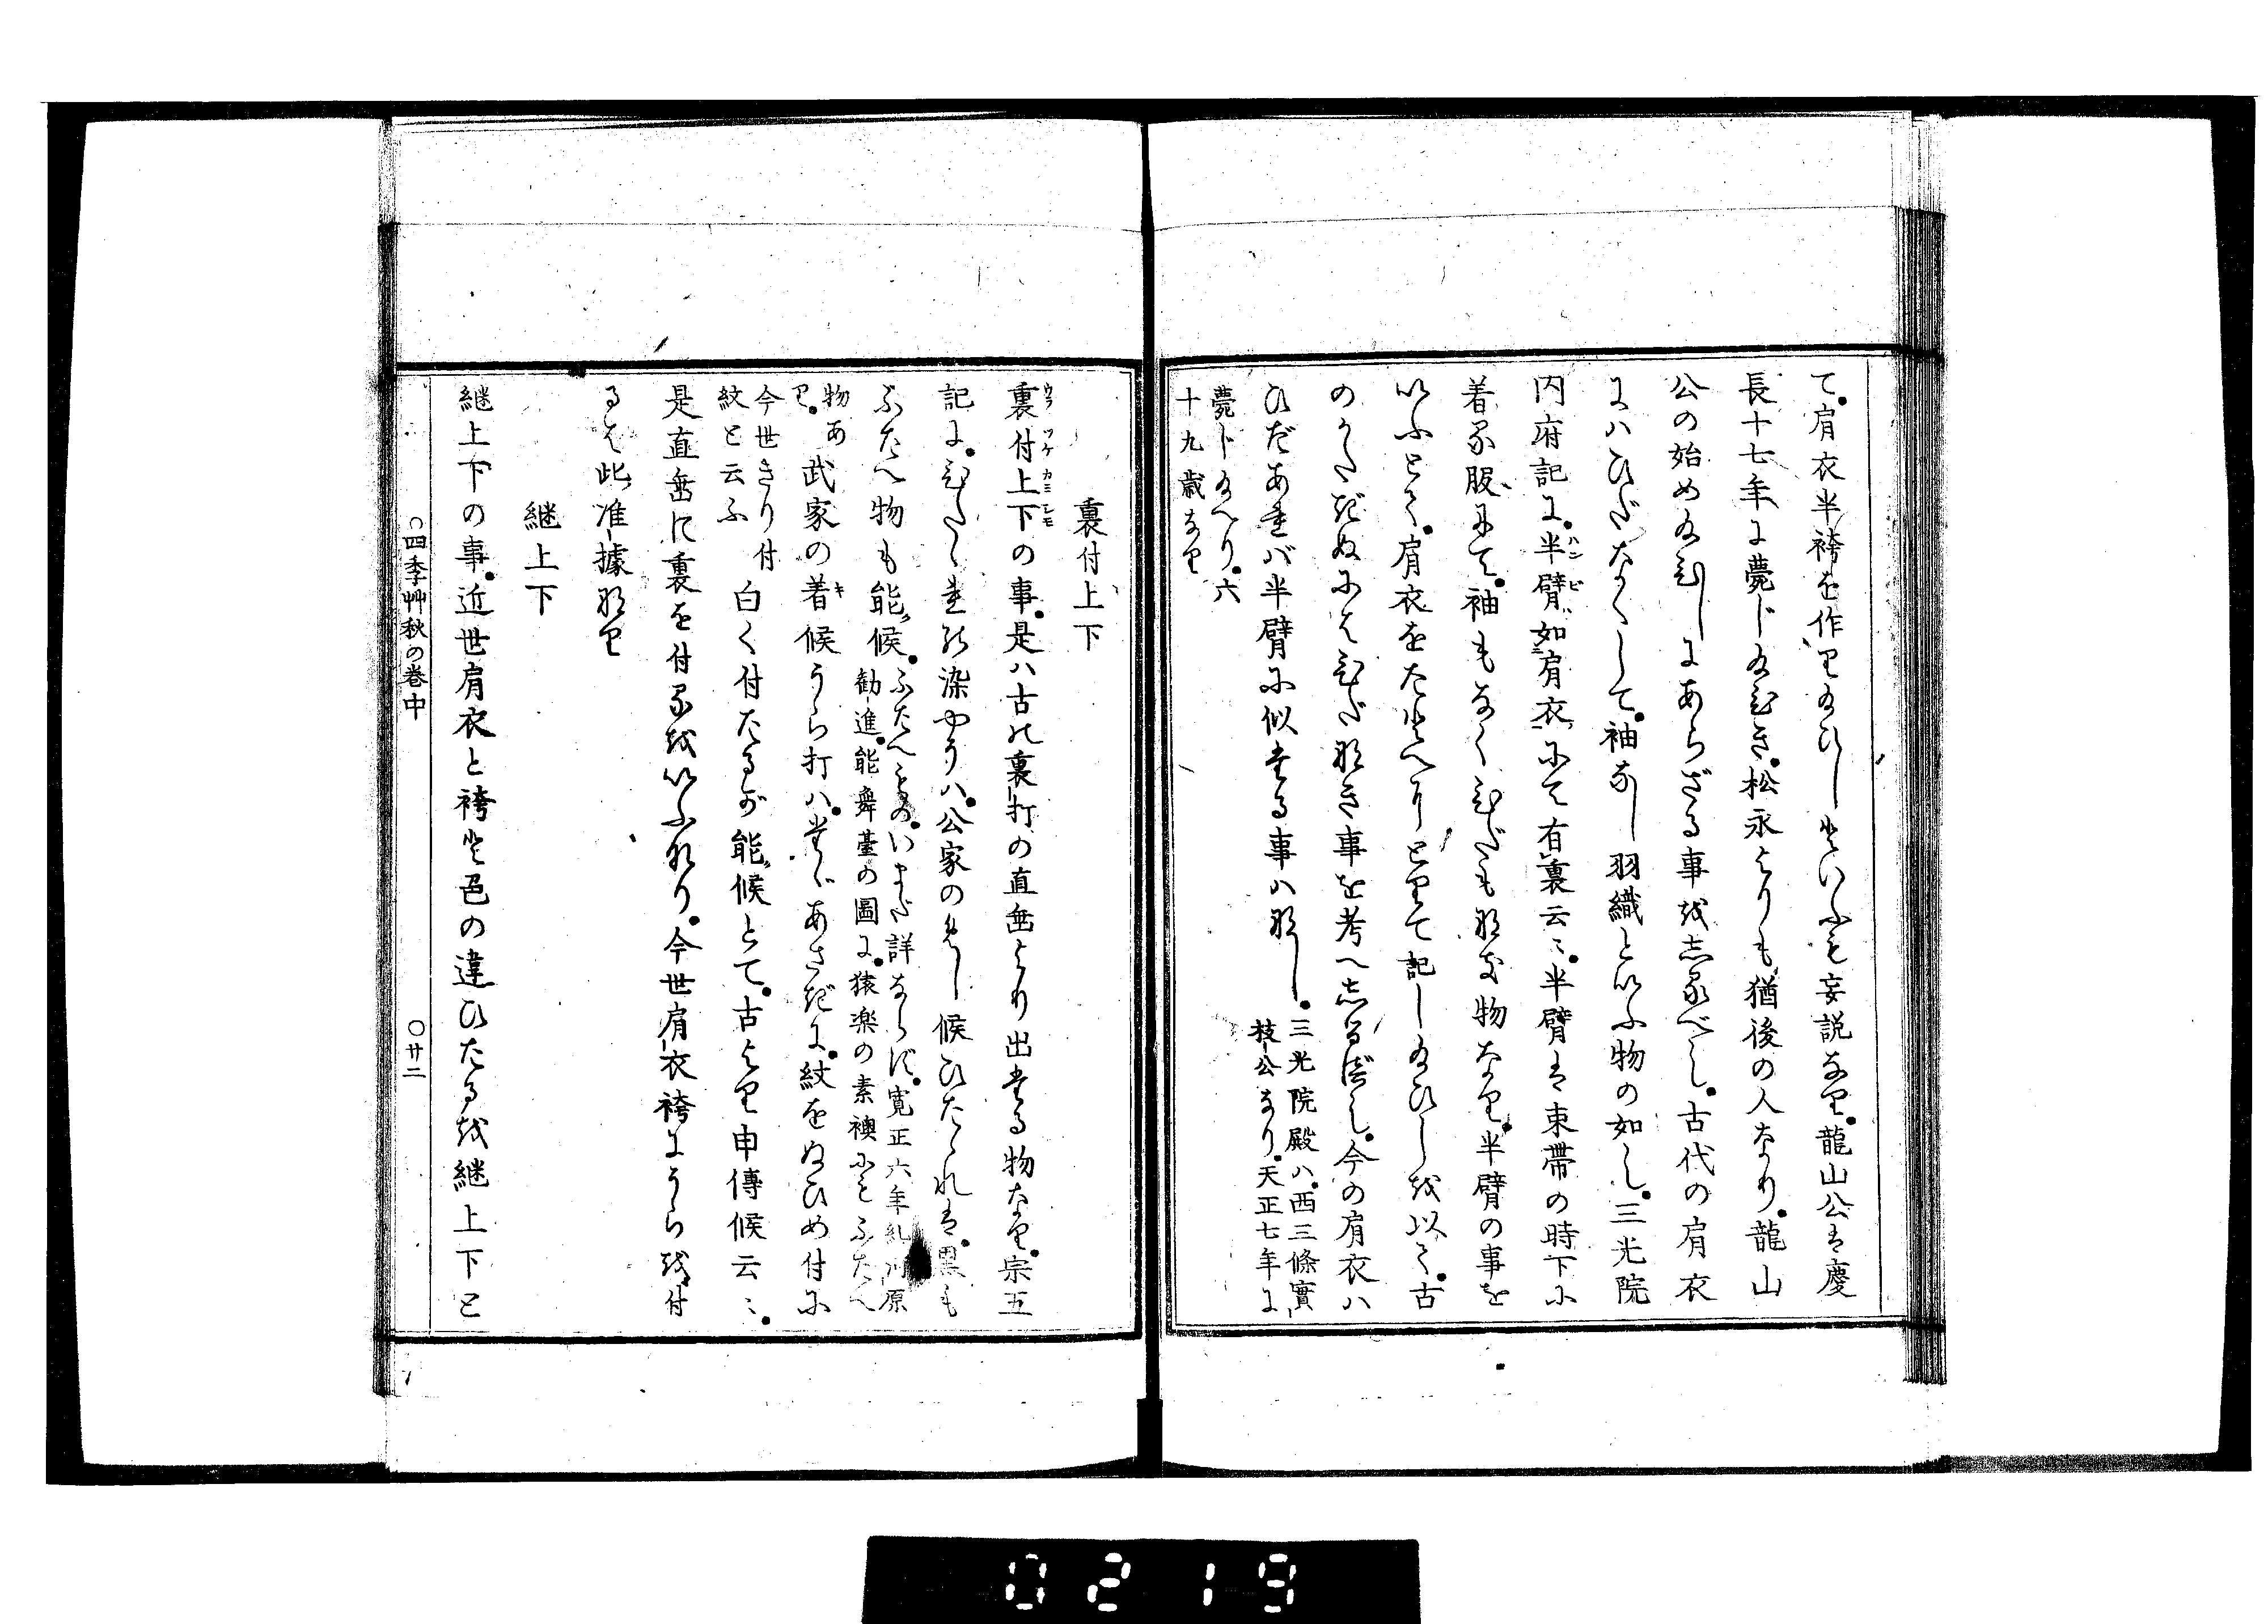 て肩衣半袴を作り給ひしといふも妄説なり龍山公は慶
長十七年に薨じ給ひき松永よりも猶後の人なり龍山
公の始め給ひしにあらざる事をしるべし古代の肩衣
にハひだなくして袖なし羽織といふ物の如し三光院
内府記に半臂ハ如肩衣にて有裏云々半臂は束帯の時下に
着る服にて袖もなくひだも那き物なり半臂の事を
いふとて肩衣をたとへりとりて記し給ひしを以て古
のかたぎぬにはひだ那き事を考へしるべし今の肩衣ハ
ひだあれバ半臂に似たる事ハ那し三光院殿ハ西三條實
枝公なり天正七年に
薨じ給へり六
十九歳なり
裏付上下
裏付上下の事是ハ古の裏打の直垂より出たる物なり宗五
記にひたゝれの染やうハ公家のめし候ひたゝれは黒も
ふたへ物も能候ふたへものいまだ詳ならず寛正六年糺河原
勧進能舞臺の圖に猿楽の素襖にもふたへ
物あ
り武家の着候うら打ハたゞあさぎに紋をぬひめ付に
今世きり付
紋と云ふ白く付たるが能候とて古より申傳候云々
是直垂に裏を付るをいふなり今世肩衣袴にうらを付
るは此准據なり
継上下
継上下の事近世肩衣と袴と色の違ひたるを継上下と
○四季艸秋の巻中　○廿二
0219